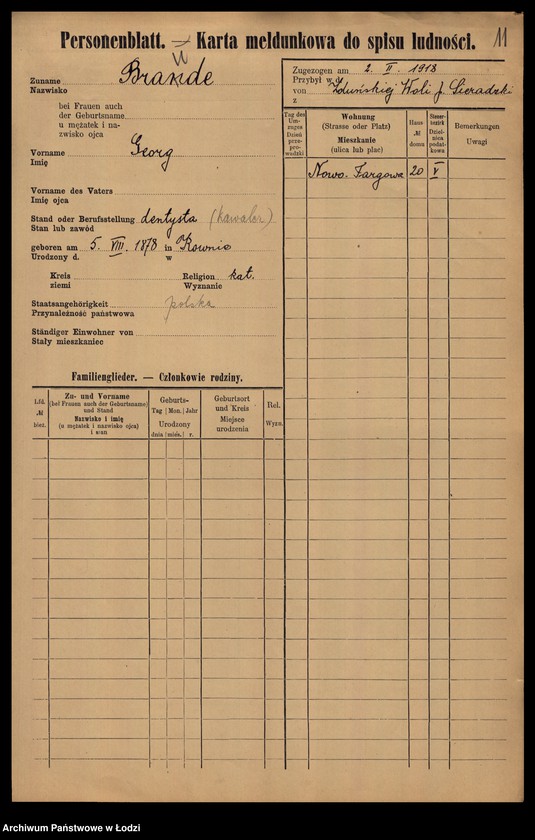 Personenblatt. — Karta meldunkowa do spisu ludności. 11
Zuname Brande
Nazwisko
bei Frauen auch
der Geburtsname
u mężatek i na-
zwisko ojca
Vorname Georg
Imię
Vorname des Vaters
Imię ojca
Stand oder Berufsstellung dentysta (kawaler)
Stan lub zawód
geboren am 5. VIII. 1878 in Kownie
Urodzony d. w
Kreis Religion kat.
ziemi Wyznanie
Staatsangehörigkeit polska
Przynależność państwowa
Ständiger Einwohner von
Stały mieszkaniec
Zugezogen am 2. II. 1918
Przybył w d.
von Zduńskiej Woli p. Sieradzki
z
Tag des
Um-
zuges
Dzień
prze-
prowadzki
Wohnung
(Strasse oder Platz)
Mieszkanie
(ulica lub plac)
Haus
№
domu
Steuer-
bezirk
Dziel-
nica
podat-
kowa
Bemerkungen
Uwagi
Nowo. Targowa 20 V
Familienglieder. — Członkowie rodziny.
Lfd.
№
bież.
Zu- und Vorname
(bei Frauen auch der Geburtsname)
und Stand
Nazwisko i imię
(u mężatek i nazwisko ojca)
i stan
Geburts-
Tag Mon. Jahr
Urodzony
dnia mies. r.
Geburtsort
und Kreis
Miejsce
urodzenia
Rel.
Wyzn.
Archiwum Państwowe w Łodzi